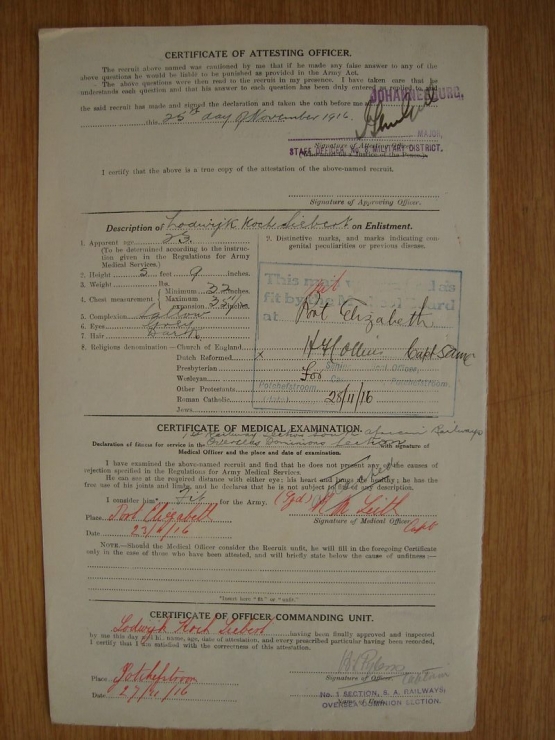 CERTIFICATE OF ATTESTING OFFICER.
The recruit above named was cautioned by me that if he made any false answer to any of the
above questions he would be liable to be punished as provided in the Army Act.
The above questions were then read to the recruit in my presence. I have taken care that he
understands each question and that his answer to each question has been duly entered
the said recruit has made and signed the declaration and taken the oath before me
JOHANNESBURG,
this 25th day of November 1916.
MAJOR,
Signature of Attesting Officer
STAFF OFFICER, No. 8 MILITARY DISTRICT.
I certify that the above is a true copy of the attestation of the above-named recruit.
Signature of Approving Officer.
Description of Lodwijk Koch Siebert on Enlistment.
1. Apparent age 23
(To be determined according to the instruc-
tion given in the Regulations for Army
Medical Services.)
2. Height 5 feet 9 inches.
3. Weight lbs.
4. Chest measurement
Minimum 32 inches
Maximum
expansion inches
5. Complexion
6. Eyes Grey
7. Hair Dark
8. Religious denomination—Church of England
Dutch Reformed x
Presbyterian
Wesleyan
Other Protestants
Roman Catholic
Jews
9. Distinctive marks, and marks indicating con-
genital peculiarities or previous disease.
This man
as
fit by the Medical Board
at
Port Elizabeth
H H Collins Capt SAMC
For
Potchefstroom
28/11/16
CERTIFICATE OF MEDICAL EXAMINATION.
1st Railway Section South African Railways
Declaration of fitness for service in the Overseas Dominions Section with signature of
Medical Officer and the place and date of examination.
I have examined the above-named recruit and find that he does not present any of the causes of
rejection specified in the Regulations for Army Medical Services.
He can see at the required distance with either eye; his heart and lungs are healthy; he has the
free use of his joints and limbs, and he declares that he is not subject to fits of any description.
I consider him* Fit for the Army. (Sgd)
Leith
Capt
Place Port Elizabeth
Signature of Medical Officer
Date
NOTE.—Should the Medical Officer consider the Recruit unfit, he will fill in the foregoing Certificate
only in the case of those who have been attested, and will briefly state below the cause of unfitness:—
*Insert here "fit" or "unfit."
CERTIFICATE OF OFFICER COMMANDING UNIT.
Lodwijk Koch Siebert having been finally approved and inspected
by me this day, his name, age, date of attestation, and every prescribed particular having been recorded,
I certify that I am satisfied with the correctness of this attestation.
Place Potchefstroom
Signature of Officer
Captain
Date 27/11/16
No. 1 SECTION, S. A. RAILWAYS,
OVERSEA DOMINION SECTION.